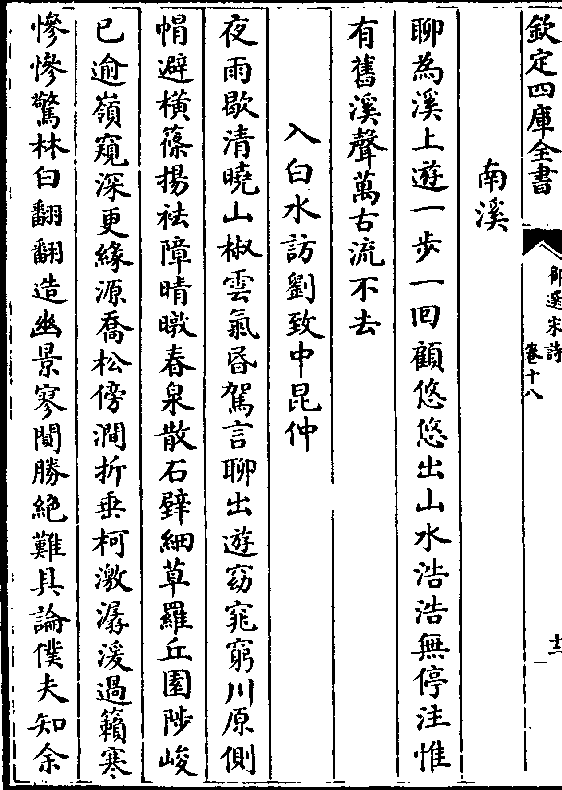 欽定四庫全書
御選宋詩
卷十八
十二
南溪
聊為溪上遊一歩一回顧悠悠出山水浩浩無停注惟
有舊溪聲萬古流不去
入白水訪劉致中昆仲
夜雨歇清曉山椒雲氣昏駕言聊出遊窈窕窮川原側
㡌避横篠揚袪障晴暾春泉散石壁細草羅丘園陟峻
已逾嶺窺深更緣源喬松傍澗折垂柯激潺湲過籟寒
慘慘驚林白翻翻造幽景寥閴勝絶難具論僕夫知余